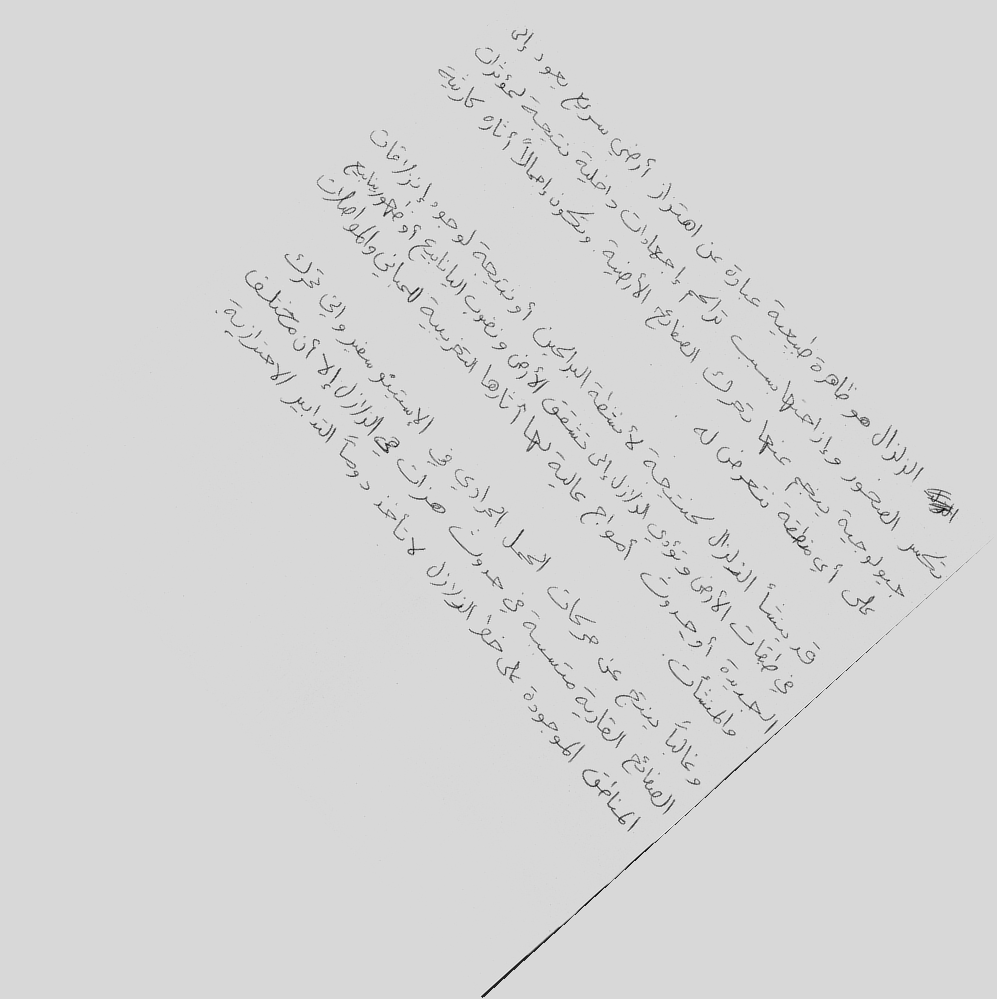 الزلزال هو ظاهرة طبيعية عبارة عن اهتزاز أرضي سريع يعود إلى
تكسر الصخور وإزاحتها بسبب تراكم إجهادات داخلية نتيجة لمؤثرات
جيولوجية ينجم عنها تحرك الصفائح الأرضية. وتكون إجمالاً أثاره كارثية
على أي منطقة تتعرض له.
قد ينشأ الزلزال كنتيجة لأنشطة البراكين أو نتيجة لوجود إنزلاقات
في طبقات الأرض وتؤدي الزلازل إلى تشقق الأرض ونضوب الينابيع أو ظهور ينابيع
الجديدة أو حدوث أمواج عالية لها أثارها التخريبية للمباني والمواصلات
والمنشآت.
وغالباً ينتج عن حركات الحمل الحراري في الإستينوسفير والتي تحرك
الصفائح القارية متسببة في حدوث هزات هي الزلازل إلا أن مختلف
المناطق الموجودة على خط الزلازل لا تأخذ دوماً التدابير الاحترازية.